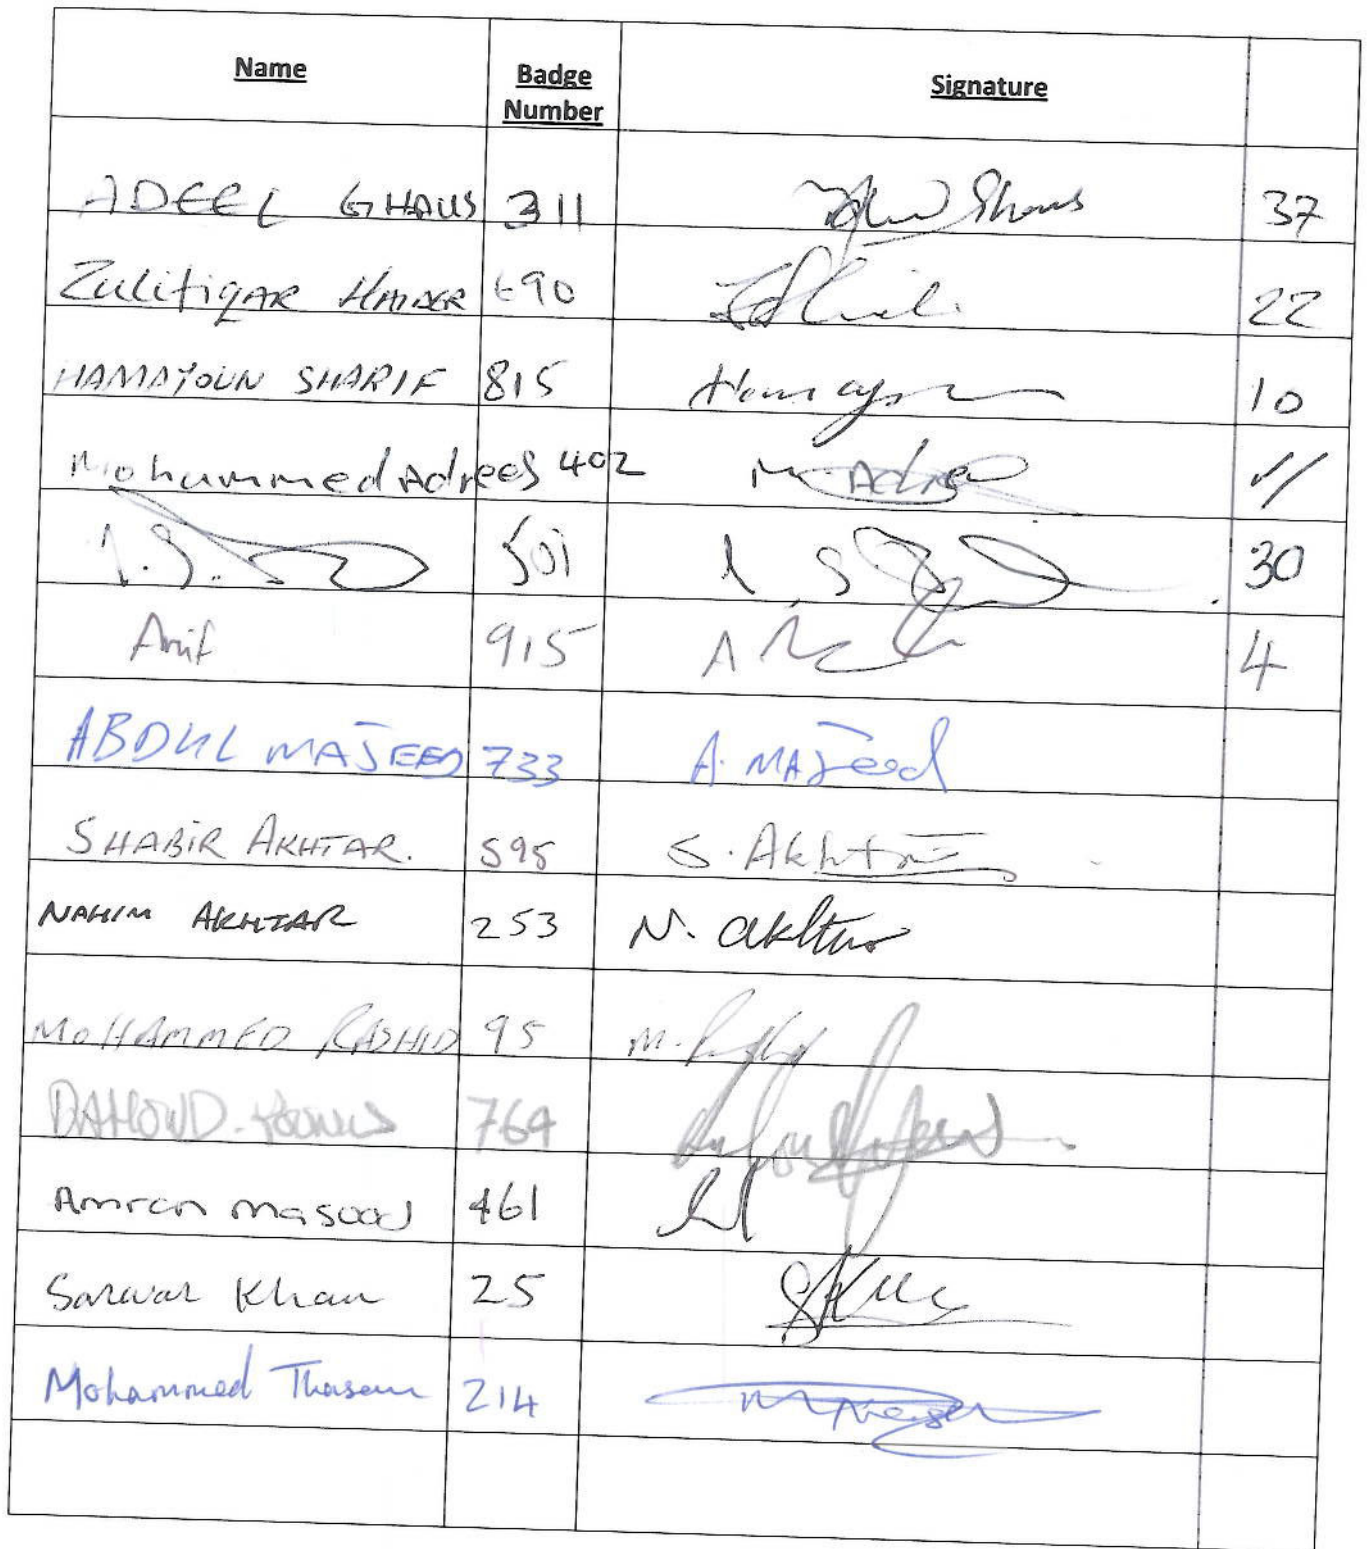 Name Badge Number Signature
ADEEL GHAUS 311 37
Zulifiqar HAIDER 690 22
HAMAYOUN SHARIF 815 Hamayun 10
Mohammed Adrees 402 M. Adrees
501 30
Arif 915 4
ABDUL MAJEED 733 A. MAJeed
SHABIR AKHTAR. 595 S. Akhtar
NAHIM AKHTAR 253 N. akhtar
MOHAMMED RASHID 95 M. Rashid
DAHOUD. YOUNUS 764
Amran masood 461
Sarwar Khan 25
Mohammed 214